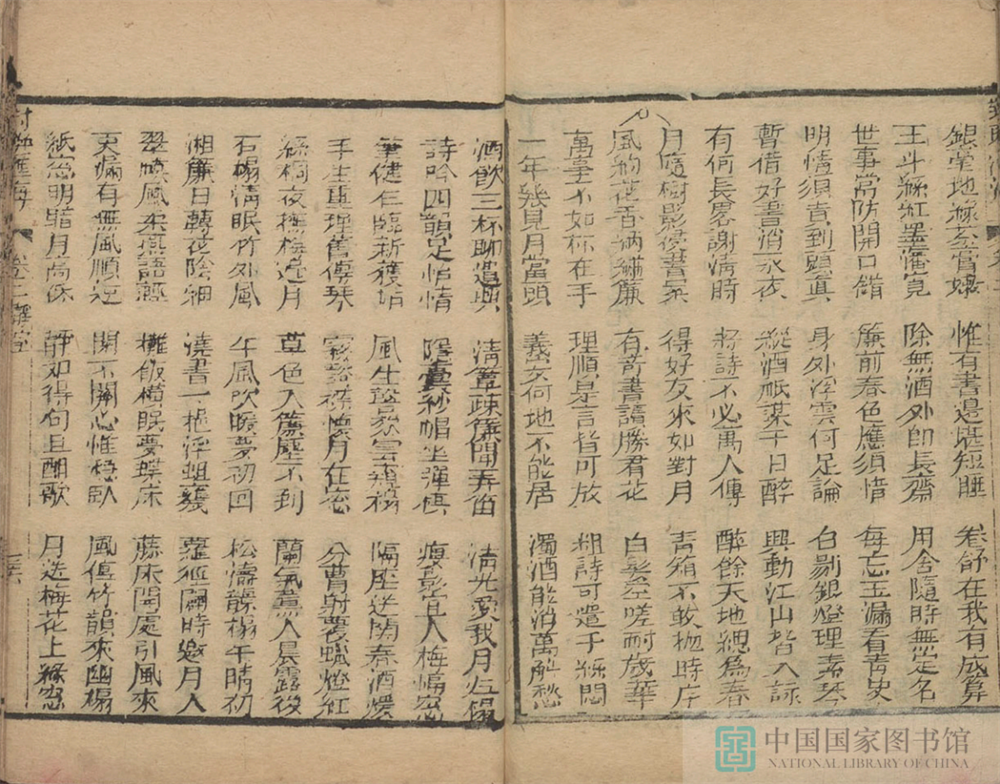 惟有書邊堪短睡 卷舒在我有成算
玉斗絲紅墨瀋寬 除無酒外即長齋 用舍隨時無定名
世事常防開口錯 簾前春色應須惜 每忘玉漏看青史
明情須責到頭真 身外浮雲何足論 白剔銀燈理素琴
暫借好書消永夜 縱酒祇某千日醉 興動江山皆入詠
有何長慮謝清時 好詩不必萬人傳 醉餘天地總為春
月隨樹影侵書案 得好友來如對月 青箱不敢拋時序
風約花香納繡簾 有奇書讀勝看花 白髮差嗟耐歲華
萬事不如杯在手 理順是言皆可放 粗詩可遣千絲悶
一年幾見月當頭 義安何地不能居 濁酒能消萬斛愁
酒飲三杯聊遣興 清簟疎簾閒弄笛 清光愛我月左榻
詩吟四韻足怡情 隱囊紗帽坐彈棋 瘦影宜人梅幅窓
筆健乍臨新獲帖 風生談欬雲霏榻 隔座送鬮春酒煖
手生重理舊傳琴 襟懷月在窓 分曹射覆蠟燈紅
絲桐夜撫梅邊月 草色入簾塵不到 蘭氣薰人晨露後
石榻清眠竹外風 午風吹暖夢初回 松濤韻榻午晴初
湘簾日轉花陰細 澆書一挹浮蛆甕 蘿徑闢時邀月入
翠幙風柔燕語輕 攤飯橫眠夢蝶床 藤床閒處引風來
更漏有無風順逆 閒不關心惟穩臥 風傳竹韻來幽榻
紙窓明暗月高低 靜如得句且酣歌 月送梅花上綠窓
卷二
中国国家图书馆
NATIONAL LIBRARY OF CHINA